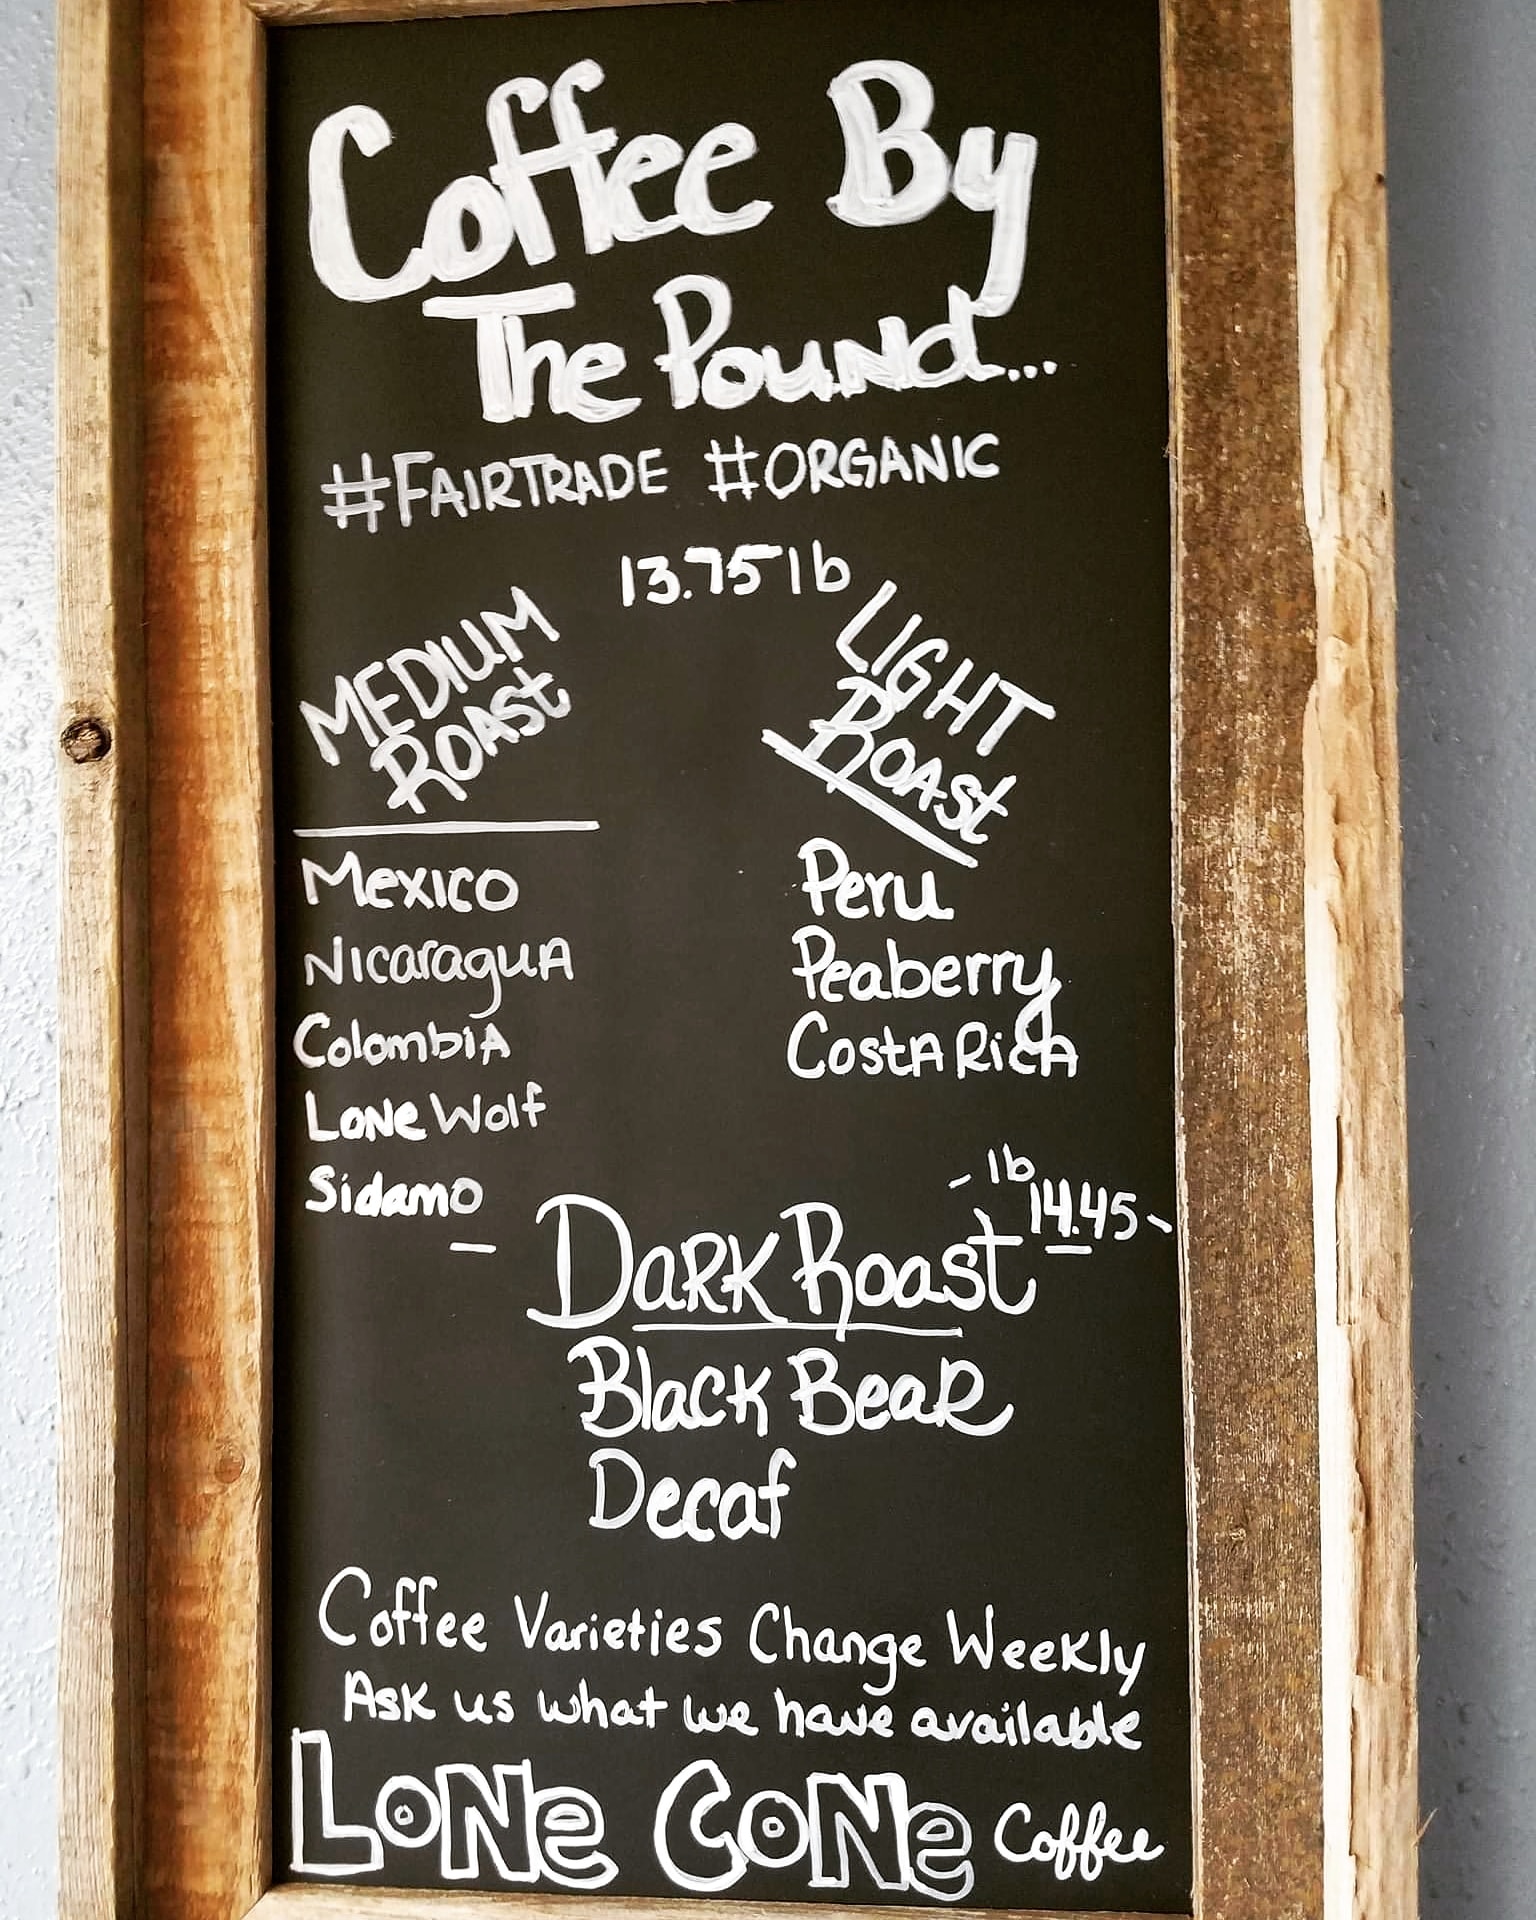 Coffee By
The Pound...
#FAIRTRADE #ORGANIC
13.75 lb
MEDIUM
ROASt
Mexico
Nicaragua
Colombia
Lone Wolf
Sidamo
LIGHT
ROASt
Peru
Peaberry
Costa Rica
lb
14.45
Dark Roast
Black Bear
Decaf
Coffee Varieties Change Weekly
Ask us what we have available
Lone Cone Coffee